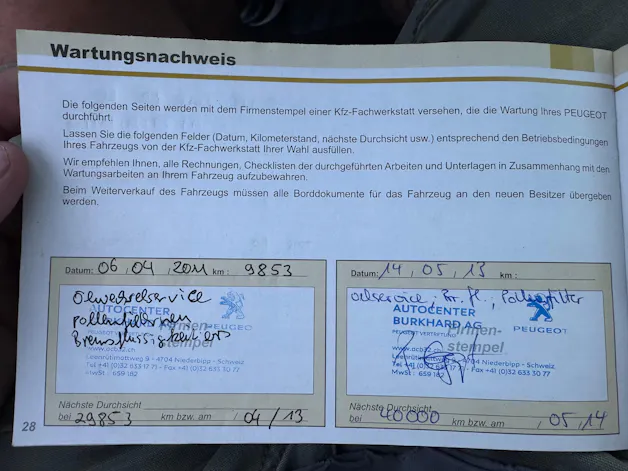 Wartungsnachweis
Die folgenden Seiten werden mit dem Firmenstempel einer Kfz-Fachwerkstatt versehen, die die Wartung Ihres PEUGEOT
durchführt.
Lassen Sie die folgenden Felder (Datum, Kilometerstand, nächste Durchsicht usw.) entsprechend den Betriebsbedingungen
Ihres Fahrzeugs von der Kfz-Fachwerkstatt Ihrer Wahl ausfüllen.
Wir empfehlen Ihnen, alle Rechnungen, Checklisten der durchgeführten Arbeiten und Unterlagen in Zusammenhang mit den
Wartungsarbeiten an Ihrem Fahrzeug aufzubewahren.
Beim Weiterverkauf des Fahrzeugs müssen alle Borddokumente für das Fahrzeug an den neuen Besitzer übergeben
werden.
Datum: 06, 04, 2011 km: 9853
Oelwechselservice
AUTOCENTER
Pollenfilter
PEUGEOT
Firmen-
Bremsflüssigkeit
stempel
www.acb72.ch
Leenrütimattweg 9 - 4704 Niederbipp - Schweiz
Tel +41 (0)32 633 - Fax +41 (0)32 633 30 77
MwSt : 659 182
Nächste Durchsicht
bei 29853 km bzw. am / 04 / 13
Datum: 14, 05, 13 km :
oelservice, Br. fl., Pollenfilter
AUTOCENTER
BURKHARD AG
PEUGEOT VERTRETUNG
PEUGEOT
Firmen-
stempel
Leenrütimattweg 9 - 4704 Niederbipp - Schweiz
Tel +41 (0)32 633 - Fax +41 (0)32 633 30 77
MwSt : 659 182
Nächste Durchsicht
bei 40000 km bzw. am / 05, 14
28